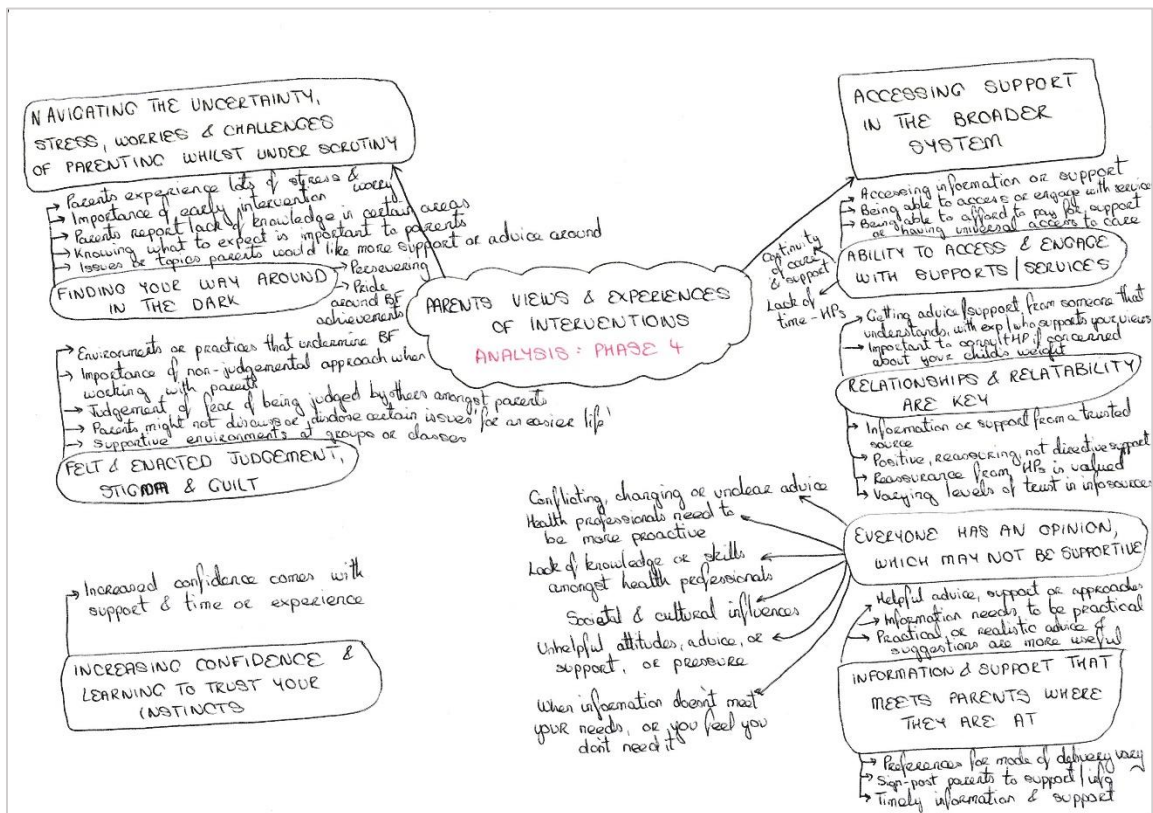 NAVIGATING THE UNCERTAINTY,
STRESS, WORRIES & CHALLENGES
OF PARENTING WHILST UNDER SCRUTINY
Parents experience lots of stress &
worry
Importance of early intervention
Parents report lack of knowledge in certain areas
Knowing what to expect is important to parents
Issues or topics parents would like more support or advice around
FINDING YOUR WAY AROUND
IN THE DARK
Persevering
Pride
around BF
achievements
Environments or practices that undermine BF
Importance of non-judgemental approach when
working with parents
Judgement of fear of being judged by others amongst parents
Parents might not discuss or disclose certain issues 'for an easier life'
Supportive environments at groups or classes
FELT & ENACTED JUDGEMENT,
STIGMA & GUILT
Increased confidence comes with
support & time or experience
INCREASING CONFIDENCE &
LEARNING TO TRUST YOUR
INSTINCTS
PARENTS VIEWS & EXPERIENCES
OF INTERVENTIONS
ANALYSIS: PHASE 4
ACCESSING SUPPORT
IN THE BROADER
SYSTEM
Accessing information or support
Being able to access or engage with service
Being able to afford to pay for support
or having universal access to care
ABILITY TO ACCESS & ENGAGE
WITH SUPPORTS/SERVICES
Continuity
of care
& support
Lack of
time - HPs
Getting advice/support from someone that
understands, with exp/who supports your views
Important to consult HP if concerned
about your child's weight
RELATIONSHIPS & RELATABILITY
ARE KEY
Information or support from a trusted
source
Positive, reassuring, not directive support
Reassurance from HPs is valued
Varying levels of trust in info sources
EVERYONE HAS AN OPINION,
WHICH MAY NOT BE SUPPORTIVE
Conflicting, changing or unclear advice
Health professionals need to
be more proactive
Lack of knowledge or skills
amongst health professionals
Societal & cultural influences
Unhelpful attitudes, advice, or
support, or pressure
When information doesn't meet
your needs, or you feel you
don't need it
Helpful advice, support or approaches
Information needs to be practical
Practical or realistic advice &
suggestions are more useful
INFORMATION & SUPPORT THAT
MEETS PARENTS WHERE
THEY ARE AT
Preferences for mode of delivery vary
Sign-post parents to support/info
Timely information & support